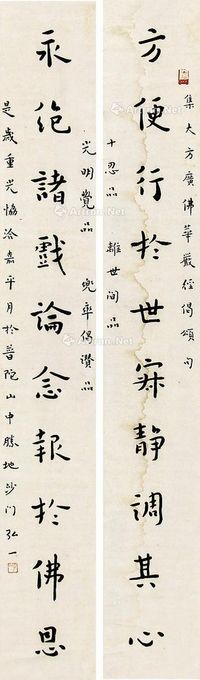 集大方廣佛華嚴經偈頌句
方便行於世寂靜調其心
十忍品 離世間品
光明覺品 兜率偈讚品
永絕諸戲論念報於佛恩
是歲重光協洽嘉平月於普陀山中勝地沙门弘一